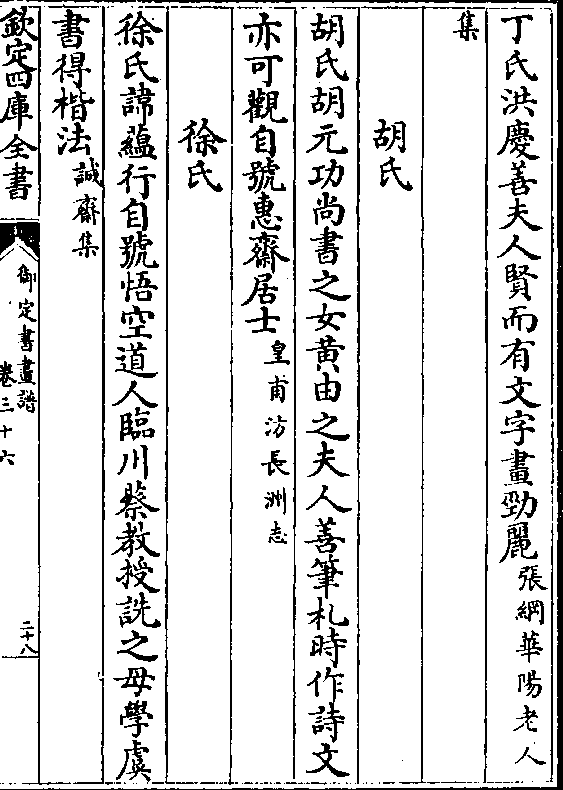 丁氏洪慶善夫人賢而有文字畫勁麗張綱華陽老人
集
胡氏
胡氏胡元功尚書之女黄由之夫人善筆札時作詩文
亦可觀自號惠齋居士皇甫汸長洲志
徐氏
徐氏諱蘊行自號悟空道人臨川蔡教授詵之母學虞
書得楷法誠齋集
欽定四庫全書
御定書畫譜
卷三十六
二十八